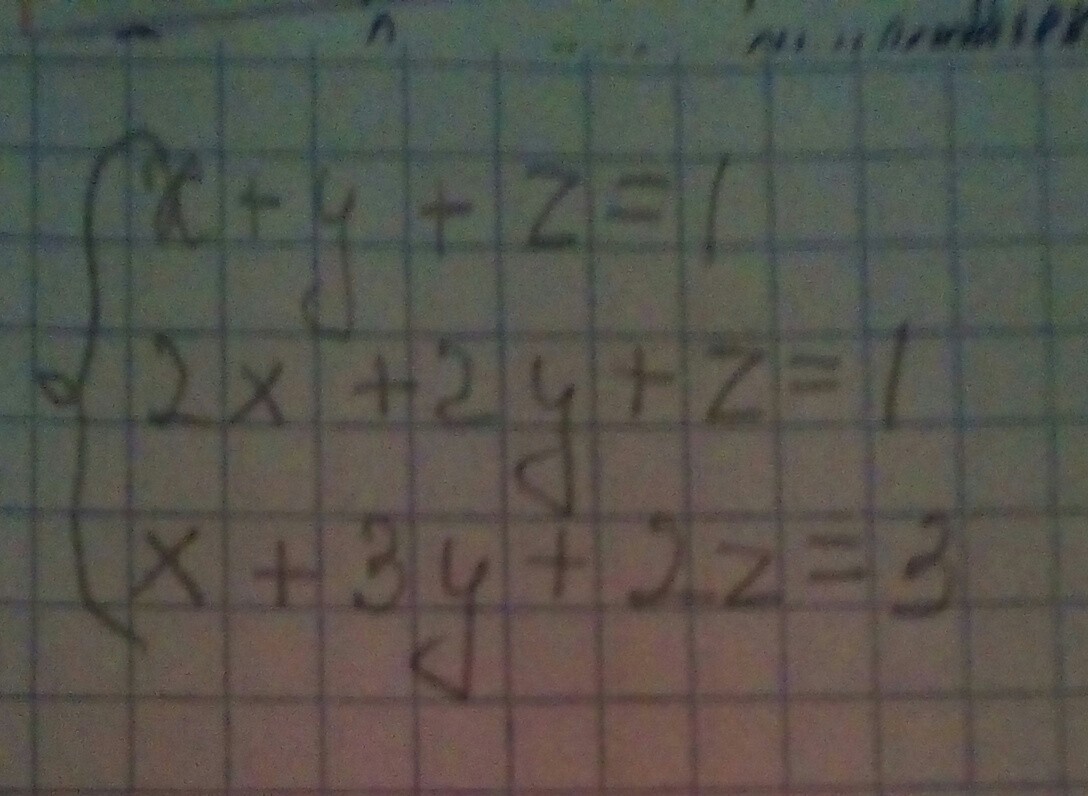 x + y + z = 1
2x + 2y + z = 1
x + 3y + 2z = 3